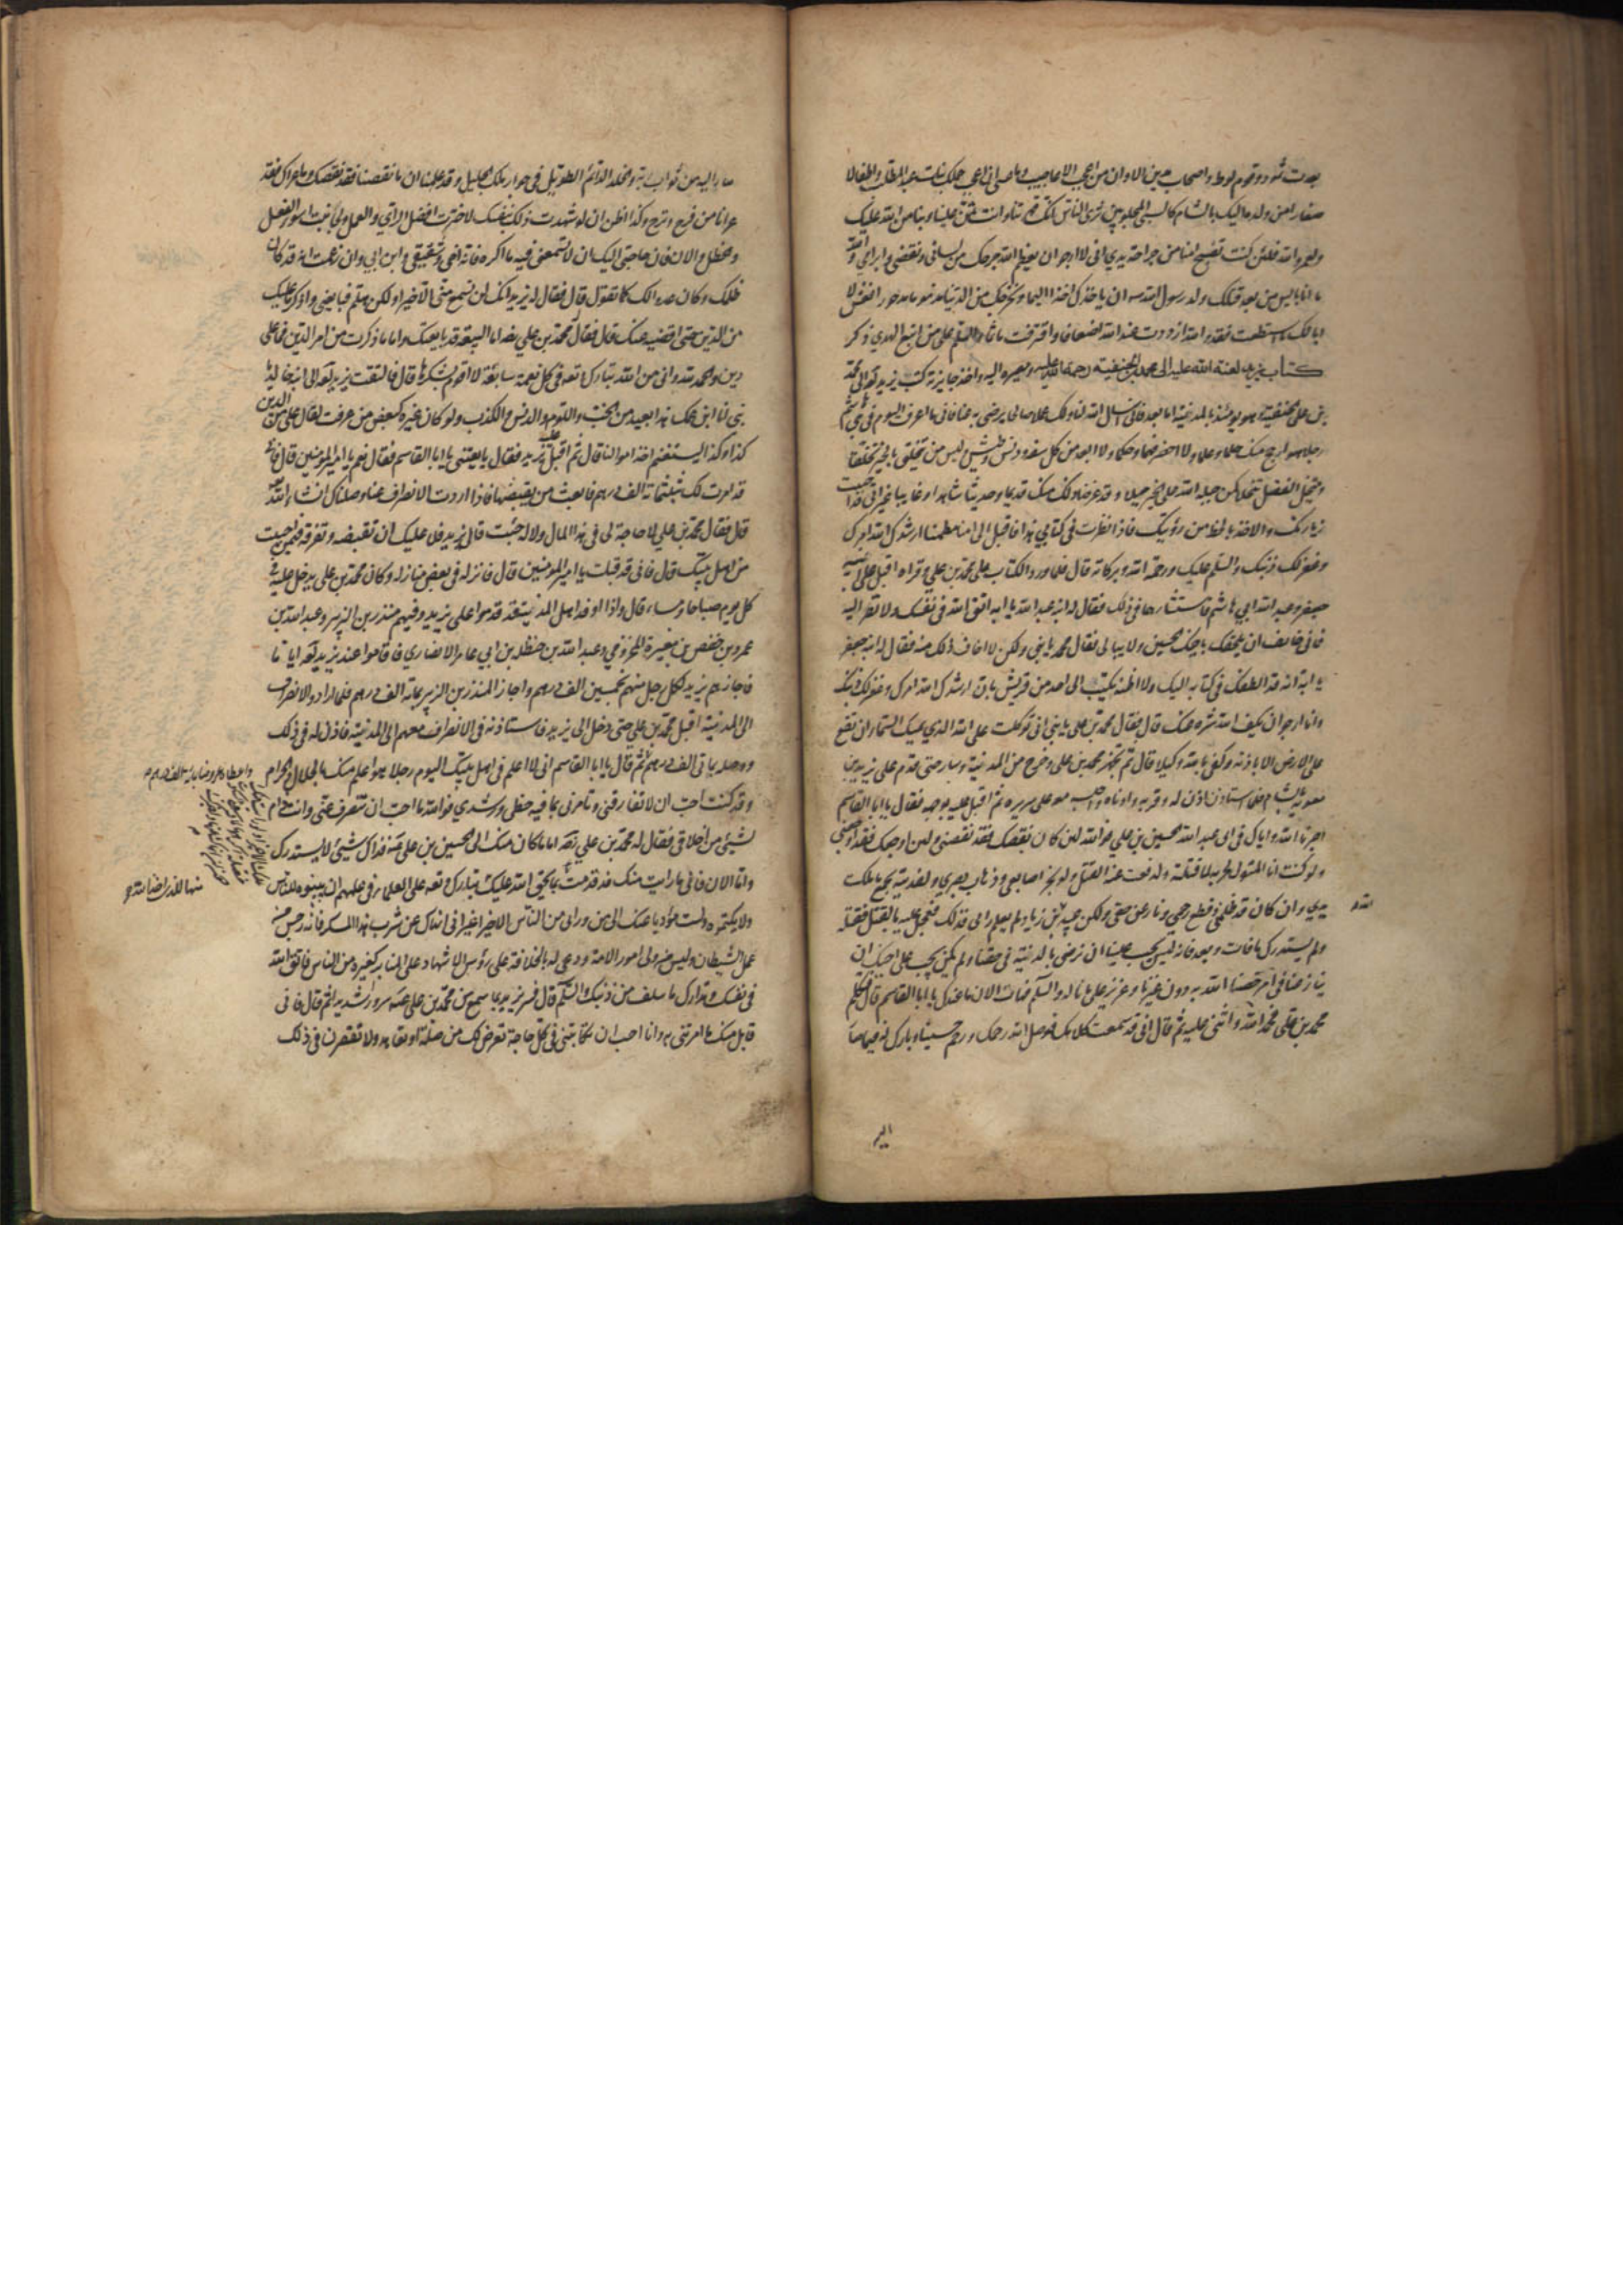 بعدت ثمود وقوم لوط واصحاب مدين الا وان من اعجب الاعاجيب وما عسى ان اعجب حملك بنات عبد المطلب واطفالا
صغارا من ولده اليك بالشام كالسبي المجلوبين ترى الناس انك قهرتنا وانت تمن علينا وبنا من الله عليك
ولعمر والله فلئن كنت تصبح امنا من جراحة يدي اني لا ارجو ان يعظم الله جرحك من لساني ونقضي وابرامي والله
ما انا بآيس من بعد قتلك ولد رسول الله ان ياخذك اخذا اليما ويخرجك من الدنيا مذموما مدحورا فعش لا
ابا لك ما استطعت فقد والله ازددت عند الله اضعافا واقترفت ماثما والسلم على من اتبع الهدي ذكر
كتاب يزيد لعنة الله عليه الى محمد بن الحنفية رحمة الله عليه ومصيره اليه واخذ جايزته كتب يزيد لعنه الله الى محمد
بن علي الحنفية وهو يومئذ بالمدينة اما بعد فاني اسال الله لنا ولك عملا صالحا يرضى به عنا فاني ما اعرف اليوم في بني هاشم
رجلا هو ارجح منك حلما وعلما ولا احضر فهما وحكما ولا ابعد من كل سفه ودنس وطيش وليس من يتخلق بالخير تخلقا
وينتحل الفضل تنحلا كمن جبله الله على الخير جبلا وقد عرفنا ذلك منك قديما وحديثا شاهدا وغايبا غير اني قد احببت
زيارتك والاخذ بالحظ من رؤيتك فاذا نظرت في كتابي هذا فاقبل الي امنا مطمئنا ارشدك الله امرك
وغفر لك ذنبك والسلم عليك ورحمة الله وبركاته قال فلما ورد الكتاب على محمد بن علي وقراه اقبل على ابنيه
جعفر وعبد الله ابي هاشم فاستشارهما في ذلك فقال له ابنه عبد الله يا ابه اتق الله في نفسك ولا تصر اليه
فاني خايف ان يلحقك باخيك الحسين ولا يبالي فقال محمد يا بني ولكن لا اخاف ذلك منه فقال له ابنه جعفر
يا ابه انه قد الطفك في كتابه اليك ولا اظنه يكتب الى احد من قريش بان ارشدك الله امرك وغفر لك ذنبك
وانا ارجو ان يكف الله شره عنك قال فقال محمد بن علي يا بني اني توكلت على الله الذي يمسك السماء ان تقع
على الارض الا باذنه وكفى بالله وكيلا قال ثم تجهز محمد بن علي وخرج من المدينة وسار حتى قدم على يزيد بن
معوية بالشام فلما استاذن اذن له وقربه وادناه واجلسه معه على سريره ثم اقبل عليه بوجهه فقال يا ابا القاسم
اجرنا الله واياك في ابي عبد الله الحسين بن علي فوالله لئن كان نقصك فقد نقصني ولئن اوجعك فقد اوجعني
ولو كنت انا المتولي لحربه لما قتلته ولدفعت عنه القتل ولو بجز اصابعي وذهاب بصري ولفديته بجميع ما ملكت
يدي وان كان قد ظلمني وقطع رحمي ونازعني حقي ولكن عبيد الله بن زياد لم يعلم رايي في ذلك فعجل عليه بالقتل فقتله
ولم يستدرك ما فات وبعد فانه ليس يجب علينا ان نرضى بالدنية في حقنا ولم يكن يجب على اخيك ان
ينازعنا في امر خصنا الله به دون غيرنا وعزيز علي ما ناله والسلم فهات الان ما عندك يا ابا القاسم قال فتكلم
محمد بن علي فحمد الله واثنى عليه ثم قال اني قد سمعت كلامك فوصل الله رحمك ورحم حسينا وبارك له فيما صا
صار اليه من ثواب ربه والخلد الدائم الطويل في جوار الملك الجليل وقد علمنا ان ما نقصنا فقد نقصك وما عراك فقد
عرانا من فرح وترح وكذا اظن ان لو شهدت ذلك بنفسك لاخترت افضل الراي والعمل ولجانبت اسوء الفعل
والخطل والان فان حاجتي اليك ان لا تسمعني فيه ما اكره فانه اخي وشقيقي وابن ابي وان زعمت انه قد كان
ظلمك وكان عدوا لك كما تقول قال فقال له يزيد انك لن تسمع مني الا خيرا ولكن هلم فبايعني واذكر ما عليك
من الدين حتى اقضيه عنك قال فقال محمد بن علي رضه اما البيعة فقد بايعتك واما ما ذكرت من امر الدين فما علي
دين والحمد لله واني من الله تبارك وتعه في كل نعمة سابغة لا اقوم بشكرها قال فالتفت يزيد لعه الى ابنه خالد
بني ان ابن عمك هذا بعيد من الخب واللوم والدنس والكذب ولو كان غيره كبعض من عرفت لقال علي من الدين
كذا وكذا ليستغنم اخذ اموالنا قال ثم اقبل عليه يزيد فقال بايعتني يا ابا القاسم فقال نعم يا امير المؤمنين قال فاني
قد امرت لك بثلثمائة الف درهم فابعث من يقبضها فاذا اردت الانصراف عنا وصلناك انشاء الله
قال فقال محمد بن علي لا حاجة لي في هذا المال ولا له جئت قال يزيد فلا عليك ان تقبضه وتفرقه فيمن احببت
من اهل بيتك قال فاني قد قبلت يا امير المؤمنين قال فانزله في بعض منازله وكان محمد بن علي يدخل عليه في
كل يوم صباحا ومساء قال واذا وفد اهل المدينة قد قدموا على يزيد وفيهم منذر بن الزبير وعبد الله بن
عمرو بن حفص بن مغيرة المخزومي وعبد الله بن حنظلة بن ابي عامر الانصاري فاقاموا عند يزيد لعه اياما
فاجازهم يزيد لكل رجل منهم بخمسين الف درهم واجاز المنذر بن الزبير بمائة الف درهم فلما ارادوا الانصراف
الى المدينة اقبل محمد بن علي حتى دخل الى يزيد فاستاذنه في الانصراف معهم الى المدينة فاذن له في ذلك
ووصله بمائتي الف درهم ثم قال يا ابا القاسم اني لا اعلم في اهل بيتك اليوم رجلا هو اعلم منك بالحلال والحرام
وقد كنت احب ان لا تفارقني وتامرني بما فيه حظي ورشدي فوالله ما احب ان تنصرف عني وانت ذام
لشيئ من اخلاقي فقال له محمد بن علي رضه اما ما كان منك الى الحسين بن علي عمه فذاك شيئ لا يستدرك
واما الان فاني ما رايت منك مذ قدمت الا خيرا
ولا يكتموه ولست مؤديا عنك الى من ورائي من الناس الا خيرا غير اني انهاك عن شرب هذا المسكر فانه رجس من
عمل الشيطان وليس من ولي امور الامة ودعي له بالخلافة على رؤس الاشهاد على المنابر كغيره من الناس فاتق الله
في نفسك وتدارك ما سلف من ذنبك والسلم قال فسر يزيد بما سمع من محمد بن علي عمه سرورا شديدا ثم قال فاني
قابل منك ما امرتني به وانا احب ان تكاتبني في كل حاجة تعرض لك من صلة او تعاهد ولا تقصرن في ذلك